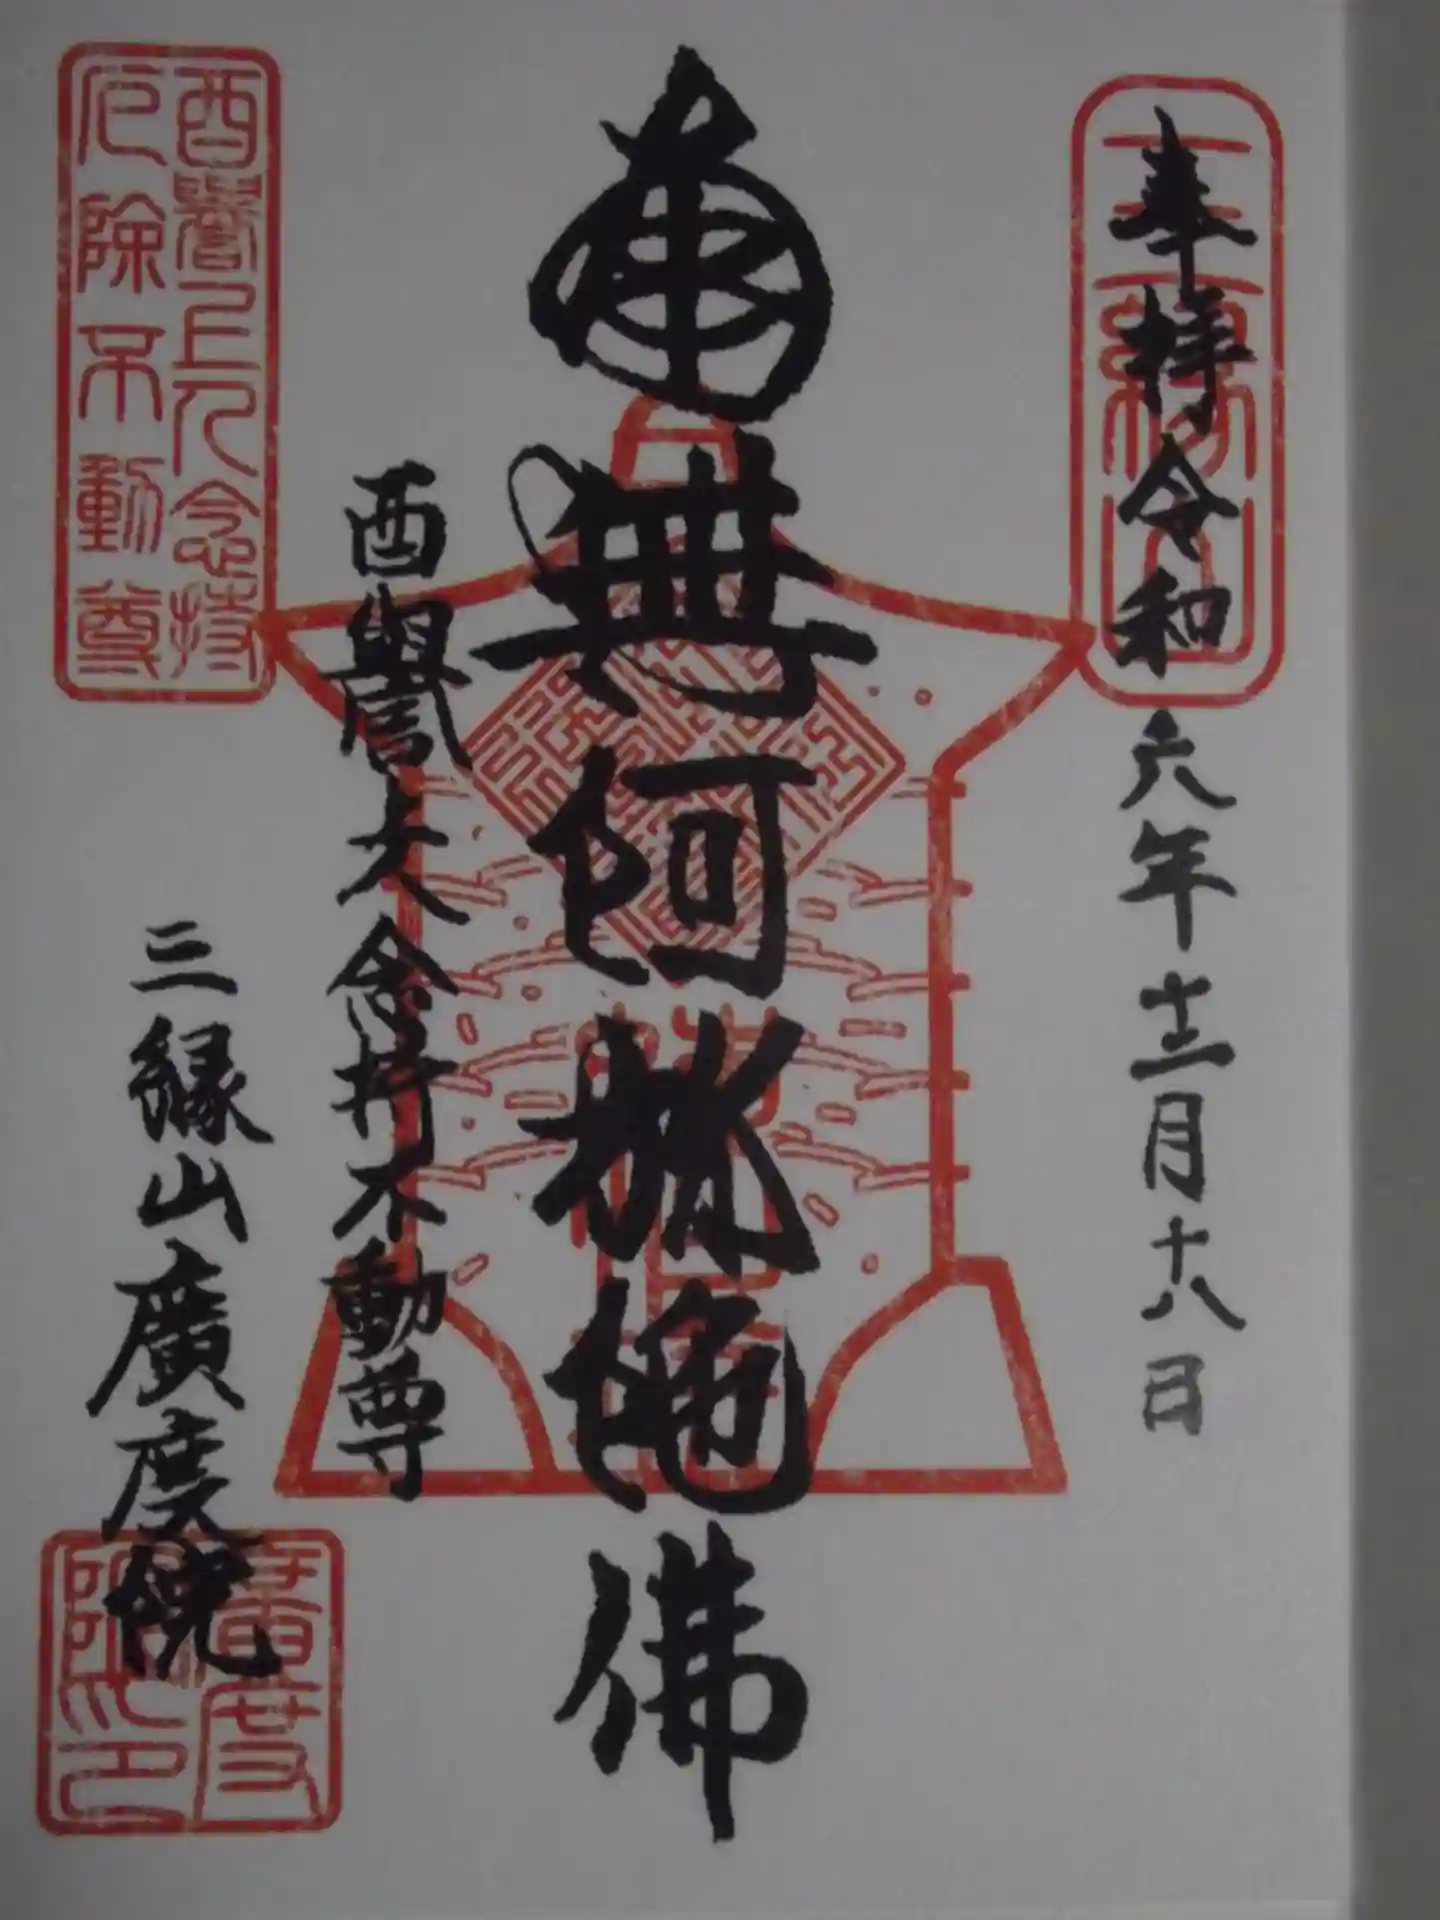 奉拝令和六年十二月十八日
三縁山
南無阿弥陀佛
酉譽大念持不動尊
三縁山廣度院
酉譽上人念持
厄除不動尊
廣度
院印